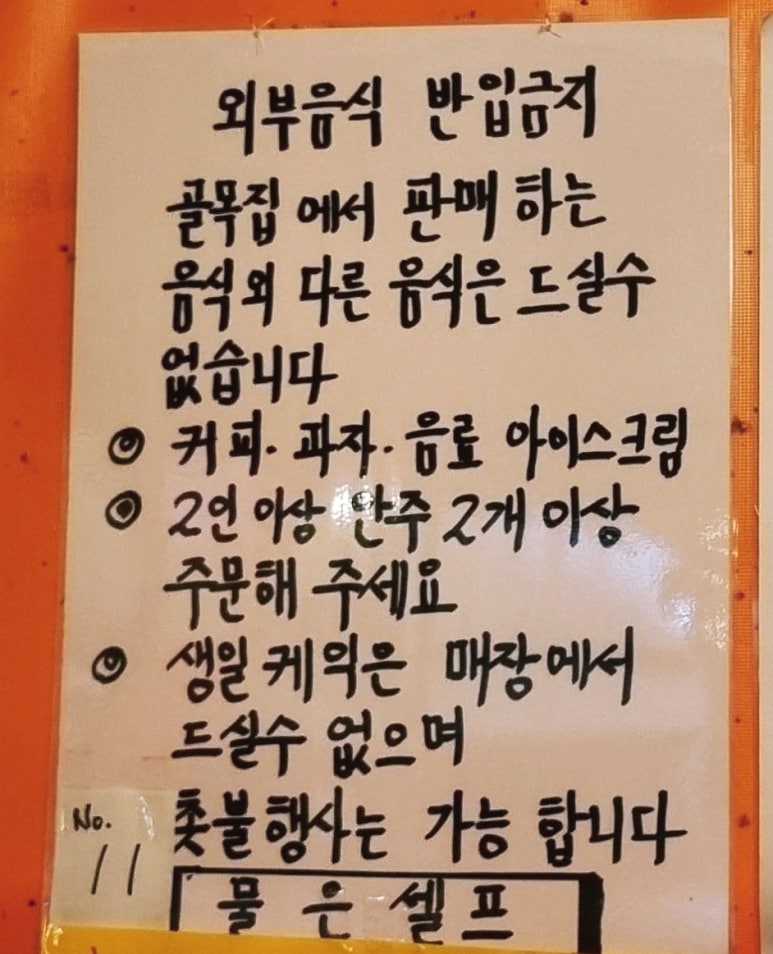 외부음식 반입금지
골목집 에서 판매 하는
음식외 다른 음식은 드실수
없습니다
◎ 커피· 과자· 음료 아이스크림
◎ 2인 이상 안주 2개 이상
주문해 주세요
◎ 생일 케익은 매장에서
드실수 없으며
촛불행사는 가능 합니다
No.
11
물 은 셀 프